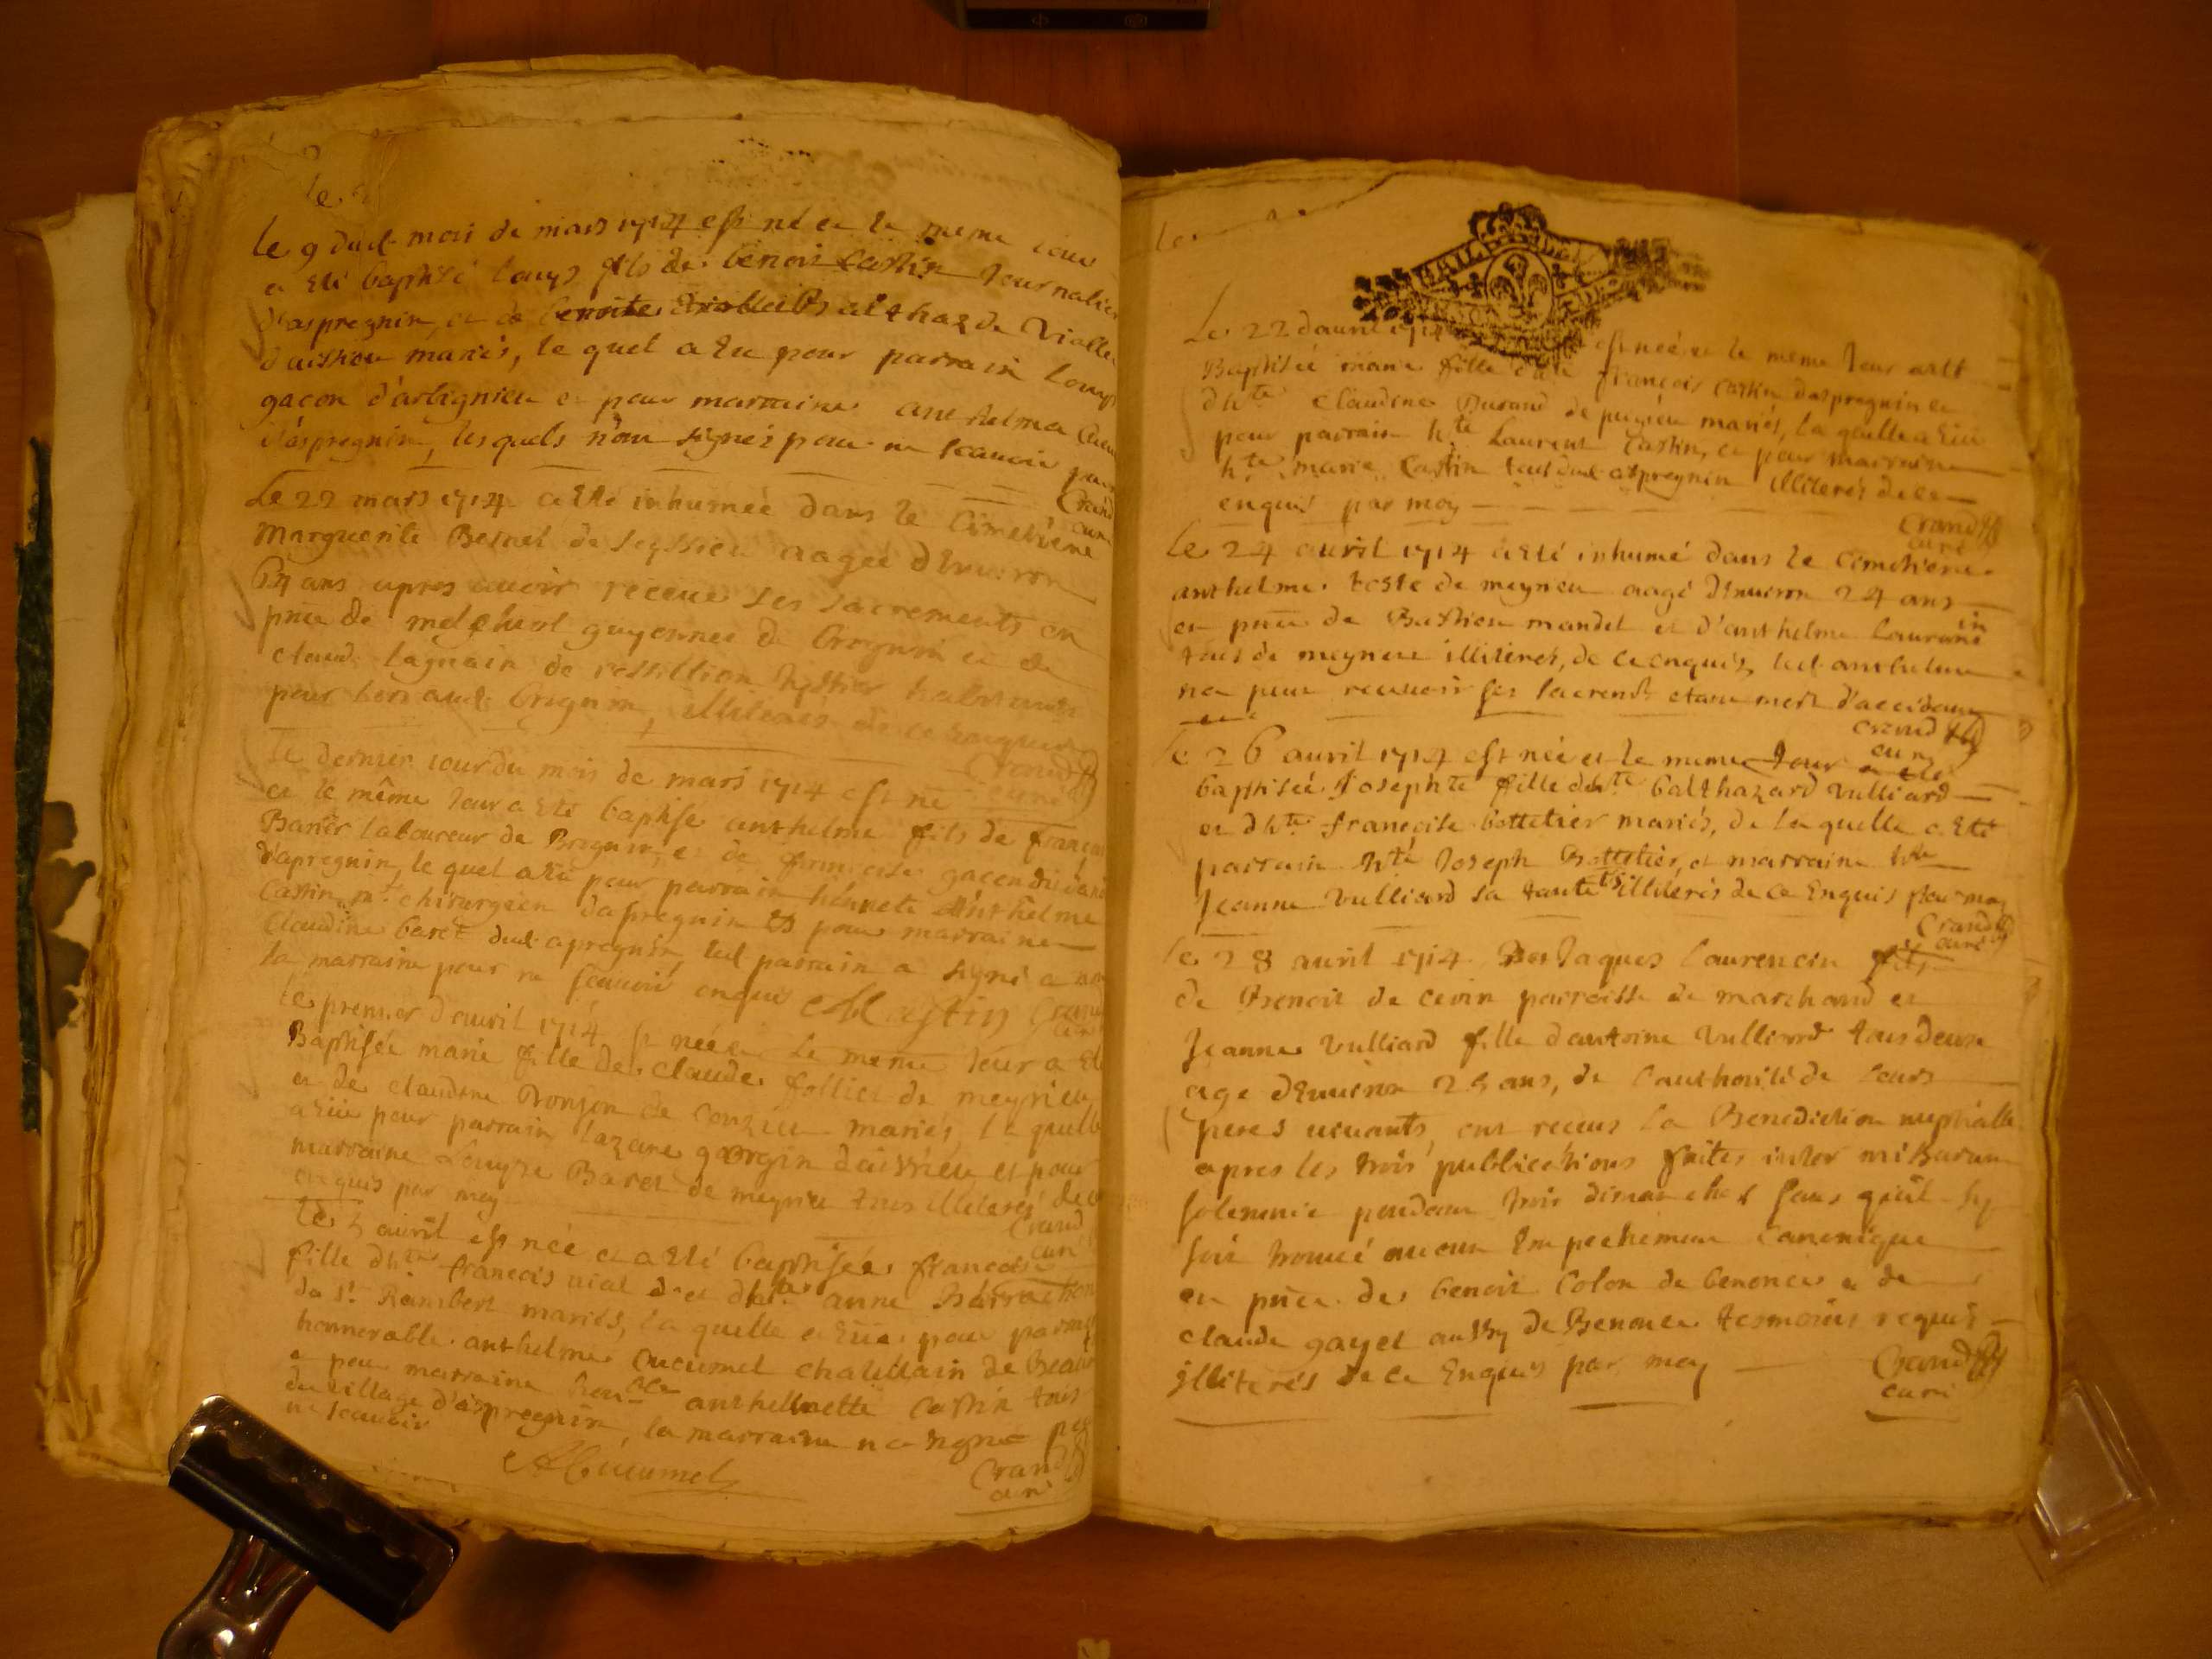 le
le 9 dud. mois de mars 1714 est né et le meme iour
a eté baptisé louys fils de benoit Castin Journalier
d'aspregnin, et de benoite althazde Violle
mariés, le quel a eu pour parrain louys
gacon d'arbignieu et pour marraine anthelma
d'aspregnin, lesquels n'ont signés pour ne scauoir
Crand
curé
Le 22 mars 1714 a eté inhumée dans le Cimetiere
Marguerite Besnet de seyssieu aagée d'Enuiron
ans apres auoir receue ses sacrements en
pnce de melchiol guyonnet de brognin et de
claude lagnain de rossillion
pour hors aud. brognin, illiterés de ce enquis
Crand
curé
Le dernier iour du mois de mars 1714 est né
et le même Jour a Eté baptisé anthelme fils de françois
Baret laboureur de Brognin, et de françoise gacon
d'apregnin, le quel a eu pour parrain honnete Anthelme
Castin, m.e chirurgien d'aspregnin et pour marraine
Claudine baret dud. apregnin, led parrain a signé a non
la marraine pour ne scauoir enquis ACastin Crand
curé
le premier d'auril 1714 est neé et le meme Jour a Eté
Baptisée marie fille de Claude folliet de meyrieu
et de claudine Bonson de Conzieu mariés, la quelle
a eüe pour parrain lazare gorgin d'aisrieu et pour
marraine Louyse Baret de meyrieu tous illiterés de ce
enquis par moy
Crand
curé
le 5 auril est née et a eté baptisée françoise
fille d'h.te francois uial et d'h.te anne
de S.t Rambert mariés, la quelle a Eüe pour parrain
honnerable anthelme Cucumel chatellain de
et pour marraine hon.ble anthelmette Castin tous
du village d'aspregnin, la marraine n'a signé
ne scauoir
ACucumel
Crand
curé
le
Le 22 d'auril 1714 est neé et le meme Jour a eté
Baptisée marie fille d'h.te françois Castin d'aspregnin et
d'h.te Claudine Durand de pugieu mariés, la quelle a Eüe
pour parrain h.te Laurent Castin, et pour marraine
h.te marie Castin tous dud. aspregnin illiterés de ce
enquis par moy
Crand
curé
le 24 auril 1714 a Eté inhumé dans le Cimetiere
anthelme teste de meyrieu aagé d'Enuiron 24 ans
en pnce de Bastien mandet et d'anthelme Laurent
tous de meyrieu illiterés, de ce enquis, led. anthelme
na peut receuoir ses sacrents etant mort d'accident
Crand
curé
le 26 auril 1714 est née et le meme Jour a eté
baptiseé Josephte fille d'h.te balthazard Vulliard
et d'h.te françoise bottelier mariés, de laquelle a Eté
parrain h.te Joseph Bottelier, et marraine h.te
Jeanne Vulliard sa tante illiterés de ce Enquis par moy
Crand
curé
le 28 auril 1714 Jaques laurencin fils
de Benoit de ceuin parroisse de marchand et
Jeanne Vulliard fille d'antoine Vulliard tous deux
age d'Enuiron 25 ans, de l'authorité de leurs
peres uiuants, ont receus la Benediction nuptialle
apres les trois publications faites inter missarum
solemnia pendant trois dimanches sans qu'il sy
soit trouué aucun Empechement Canonique
en pnce de benoit Colon de benonce et de
claude gayet aussy de Benonce tesmoins requis
illiterés de ce Enquis par moy
Crand
curé